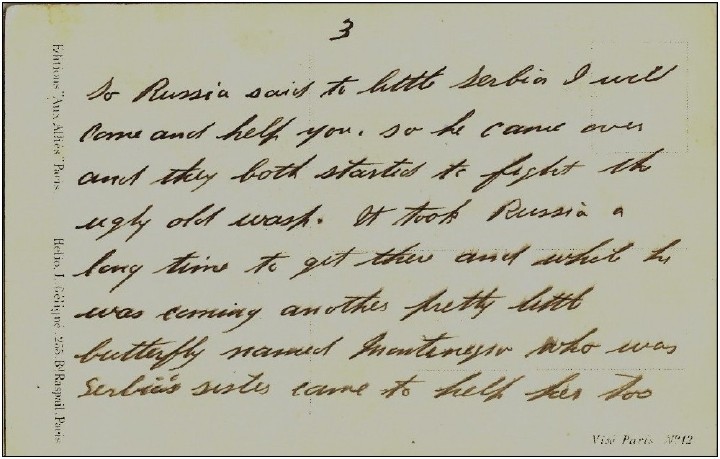 3
So Russia said to little Serbia I will
Come and help you. so he came over
and they both started to fight the
ugly old wasp. It took Russia a
long time to get there and while he
was coming another pretty little
butterfly named Montenegro who was
Serbia's sister came to help her too
Editions "Aux Alliés" Paris
Helio. L. Géligné. 255. Bd Raspail. Paris
Visé Paris. No 12